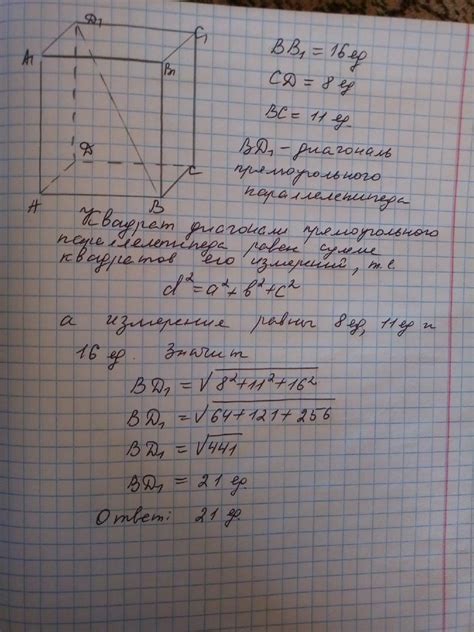 D₁
C₁
A₁
B₁
D
C
A
B
BB₁ = 16 ед
CD = 8 ед
BC = 11 ед.
BD₁ - диагональ
прямоугольного
параллелепипеда
Квадрат диагонали прямоугольного
параллелепипеда равен сумме
квадратов его измерений, т.е
d² = a² + b² + c²
а измерения равны 8 ед, 11 ед и
16 ед. Значит
BD₁ = √8²+11²+16²
BD₁ = √64+121+256
BD₁ = √441
BD₁ = 21 ед.
Ответ: 21 ед.